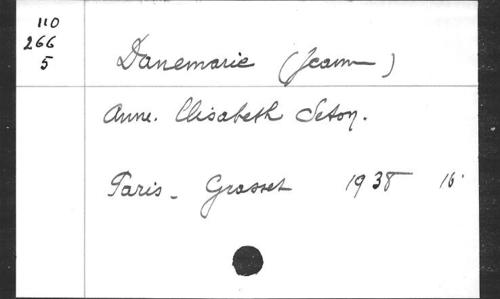 110
266
5
Danemarie (Jeanne)
Anne. Elisabeth Seton.
Paris - Grasset 1938 16°